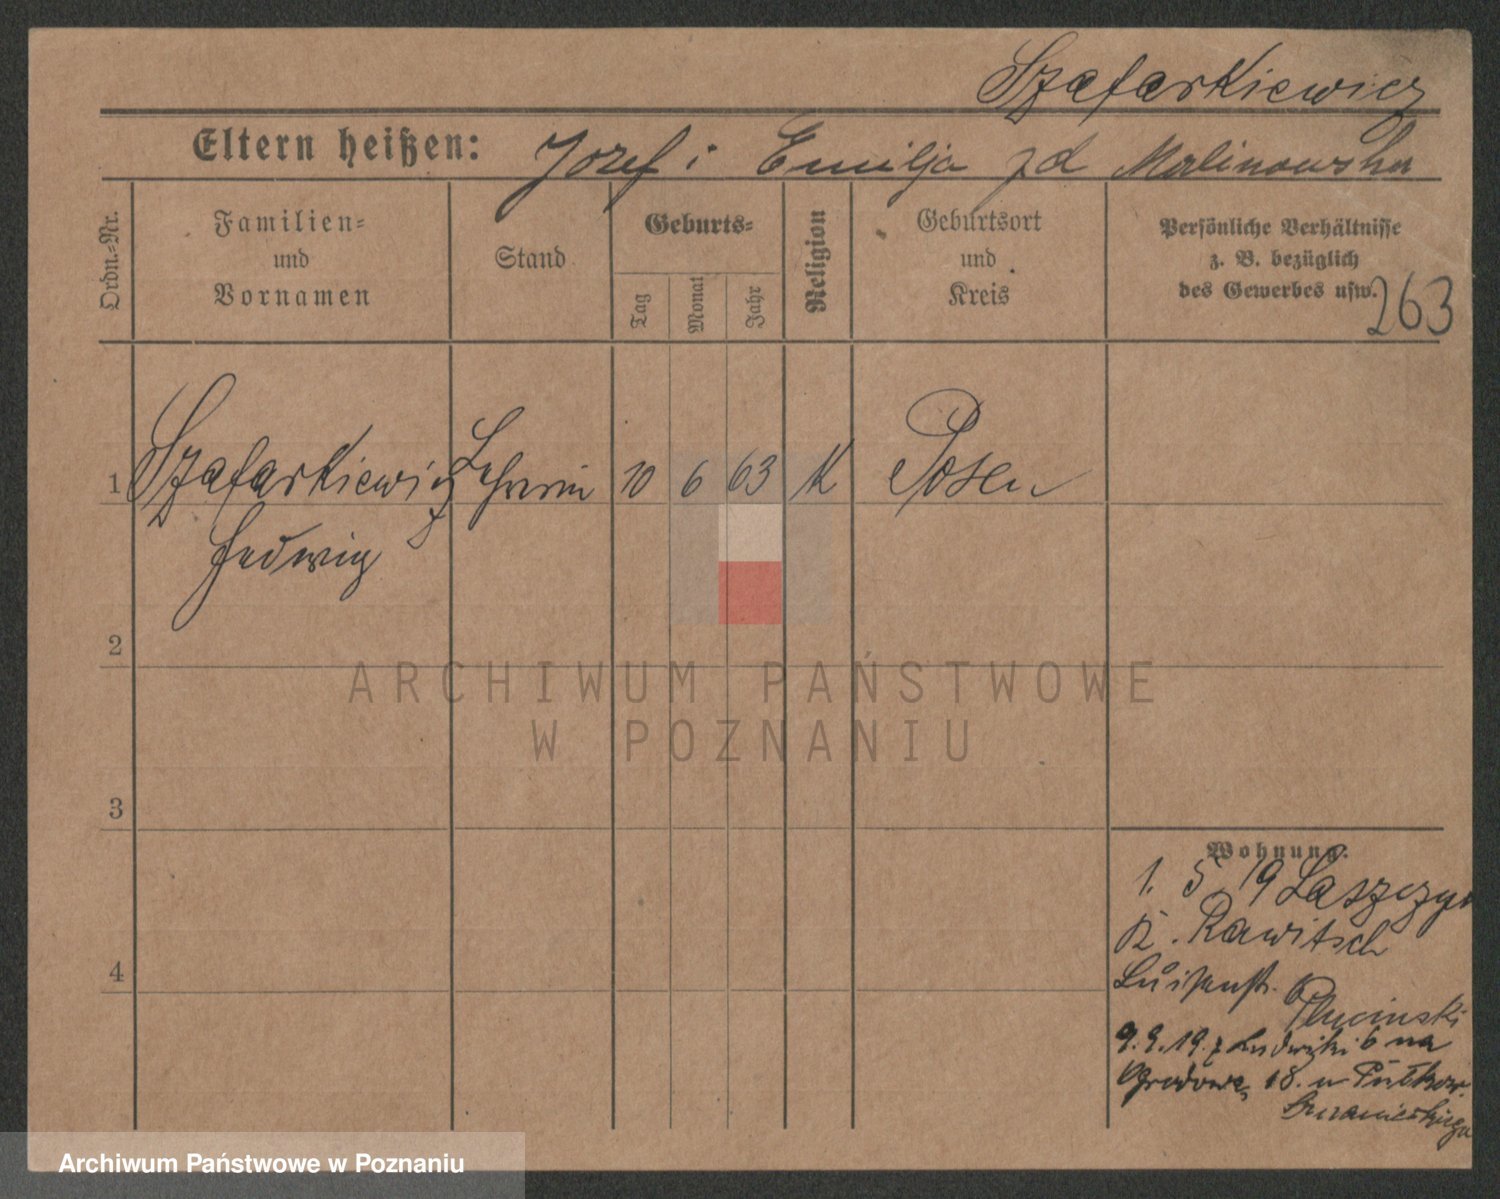 Szafarkiewicz
Eltern heißen: Józef i Emilja zd Malinowska
Ordn.-Nr.
Familien-
und
Vornamen
Stand
Geburts-
Tag
Monat
Jahr
Religion
Geburtsort
und
Kreis
Persönliche Verhältnisse
z. B. bezüglich
des Gewerbes usw.
263
1 Szafarkiewicz Lehrerin 10 6 63 K Posen
Hedwig
2
3
4
Wohnung:
1. 5. 19 Laszczyn
K. Rawitsch
Luisenstr. 6
Plucinski
9.9.19. z Ludwiki 6 na
Ogrodową 18. u
ARCHIWUM PAŃSTWOWE
W POZNANIU
Archiwum Państwowe w Poznaniu